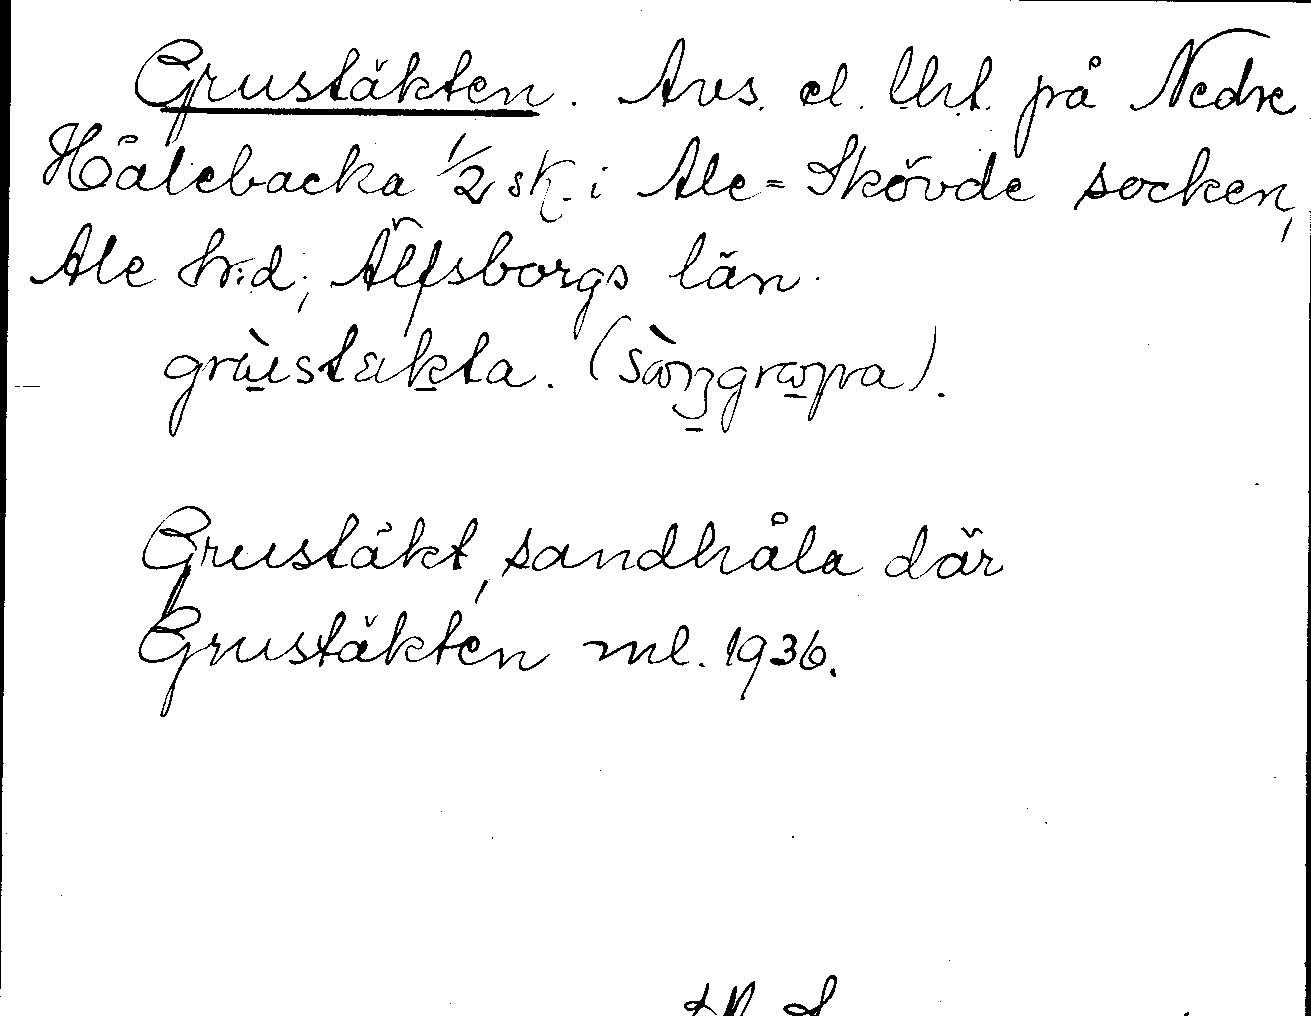 Grustäkten. Avs. el. Urt. på Nedre
Hålebacka 1/2 sk. i Ale-Skövde socken,
Ale hd; Älfsborgs län.
grùstäkta. (sàngropa).
Grustäkt, sandhåla där
Grustäkten ml. 1936.